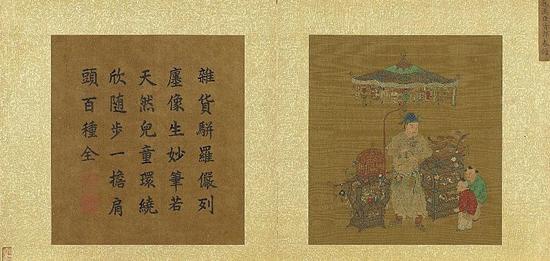 雜貨駢羅儼列
廛像生妙筆若
天然兒童環繞
欣隨步一擔肩
頭百種全